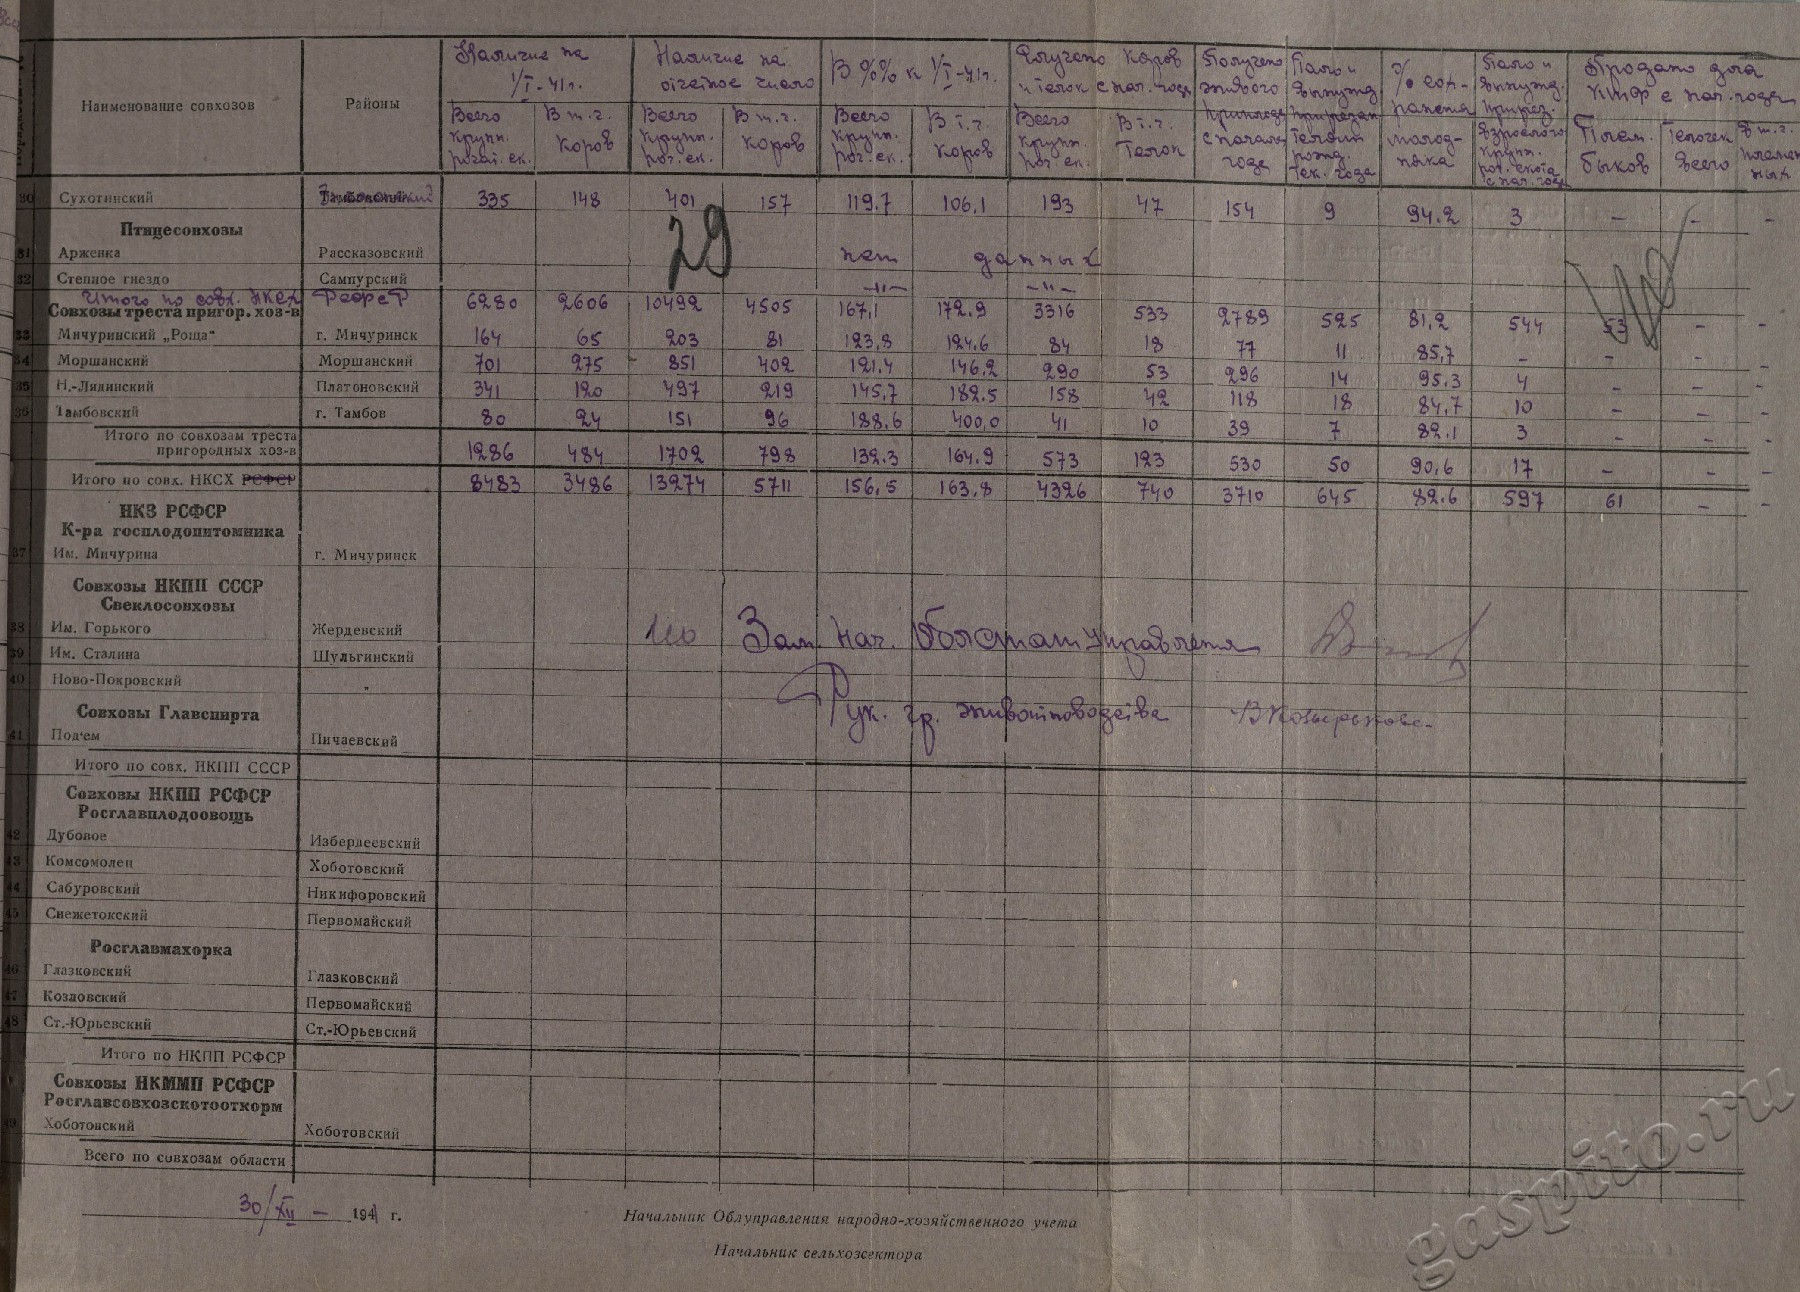 Наименование совхозов | Районы | Наличие на 1/I-41г. | Наличие на отчетное число | В %% к 1/I-41г. | Случено коров и телок с нач. года | Получено живого приплода с начала года | Пало и вынужд. прирезан телят рожд. тек. года | % сохранения молодняка | Пало и вынужд. прирез. взрослого крупн. рог. скота с нач. года | Продано для КТФ с нач. года
Всего крупн. рогат. ск. | В т.ч. коров | Всего крупн. рог. ск. | В т.ч. коров | Всего крупн. рог. ск. | В т.ч. коров | Всего крупн. рог. ск. | В т.ч. телок | Плем. быков | Телочек всего | В т.ч. племенных
30 Сухотинский 335 148 401 157 119.7 106.1 193 47 154 9 94.2 3 – – –
29
Птицесовхозы
31 Арженка Рассказовский нет данных
32 Степное гнездо Сампурский –"– –"–
Итого по совх. НКСХ РСФСР 6280 2606 10492 4505 167,1 172.9 3316 533 2789 525 81,2 544 53 – –
Совхозы треста пригор. хоз-в
33 Мичуринский „Роща“ г. Мичуринск 164 65 203 81 123,8 124.6 84 18 77 11 85,7 – – – –
34 Моршанский Моршанский 701 275 851 402 121.4 146.2 290 53 296 14 95.3 4 – – –
35 Н.-Лядинский Платоновский 341 120 497 219 145,7 182.5 158 42 118 18 84,7 10 – – –
36 Тамбовский г. Тамбов 80 24 151 96 188,6 400,0 41 10 39 7 82.1 3 – – –
Итого по совхозам треста
пригородных хоз-в 1286 484 1702 798 132.3 164.9 573 123 530 50 90,6 17 – – –
Итого по совх. НКСХ РСФСР 8483 3486 13274 5711 156,5 163,8 4326 740 3710 645 82.6 597 61 – –
НКЗ РСФСР
К-ра госплодопитомника
37 Им. Мичурина г. Мичуринск
Совхозы НКПП СССР
Свеклосовхозы
38 Им. Горького Жердевский
Зам. Нач. Облстатуправления
39 Им. Сталина Шульгинский
40 Ново-Покровский "
Рук. гр. животноводства
Совхозы Главспирта
41 Под'ем Пичаевский
Итого по совх. НКПП СССР
Совхозы НКПП РСФСР
Росглавплодоовощь
42 Дубовое Избердеевский
43 Комсомолец Хоботовский
44 Сабуровский Никифоровский
45 Снежетокский Первомайский
Росглавмахорка
46 Глазковский Глазковский
47 Козловский Первомайский
48 Ст.-Юрьевский Ст.-Юрьевский
Итого по НКПП РСФСР
Совхозы НКММП РСФСР
Росглавсовхозскотооткорм
49 Хоботовский Хоботовский
Всего по совхозам области
30/XII – 1941 г.
Начальник Облуправления народно-хозяйственного учета
Начальник сельхозсектора
gaspito.ru